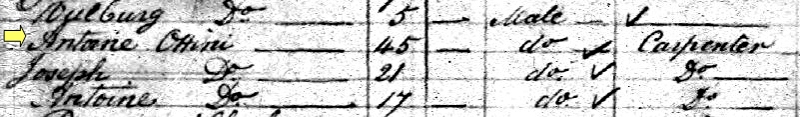 Wulburg Do 5 Male
Antoine Ottini 45 do Carpenter
Joseph Do 21 do Do
Antoine Do 17 do Do